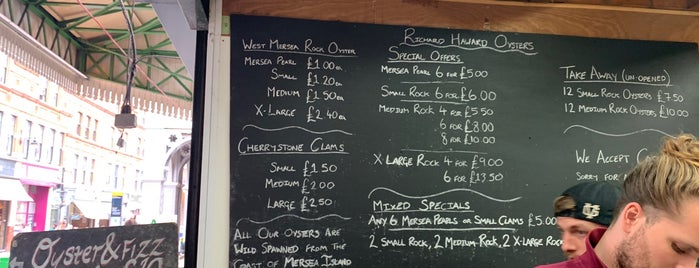 West Mersea Rock Oyster
Mersea Pearl £1.00ea
Small £1.20ea
Medium £1.50ea
X-Large £2.40ea
Cherrystone Clams
Small £1.50
Medium £2.00
Large £2.50
All Our Oysters Are
Wild Spawned from the
Coast of Mersea Island
Richard Haward Oysters
Special Offers
Mersea Pearl 6 for £5.00
Small Rock 6 for £6.00
Medium Rock 4 for £5.50
6 for £8.00
8 for £10
X Large Rock 4 for £9.00
6 for £13.50
Mixed Specials
Any 6 Mersea Pearls or Small Clams £5.00
2 Small Rock, 2 Medium-Rock, 2 X-Large Rock
Take Away (un-opened)
12 Small Rock Oysters £7.50
12 Medium Rock Oysters £10.00
We Accept
Sorry for
Oyster & Fizz
£10